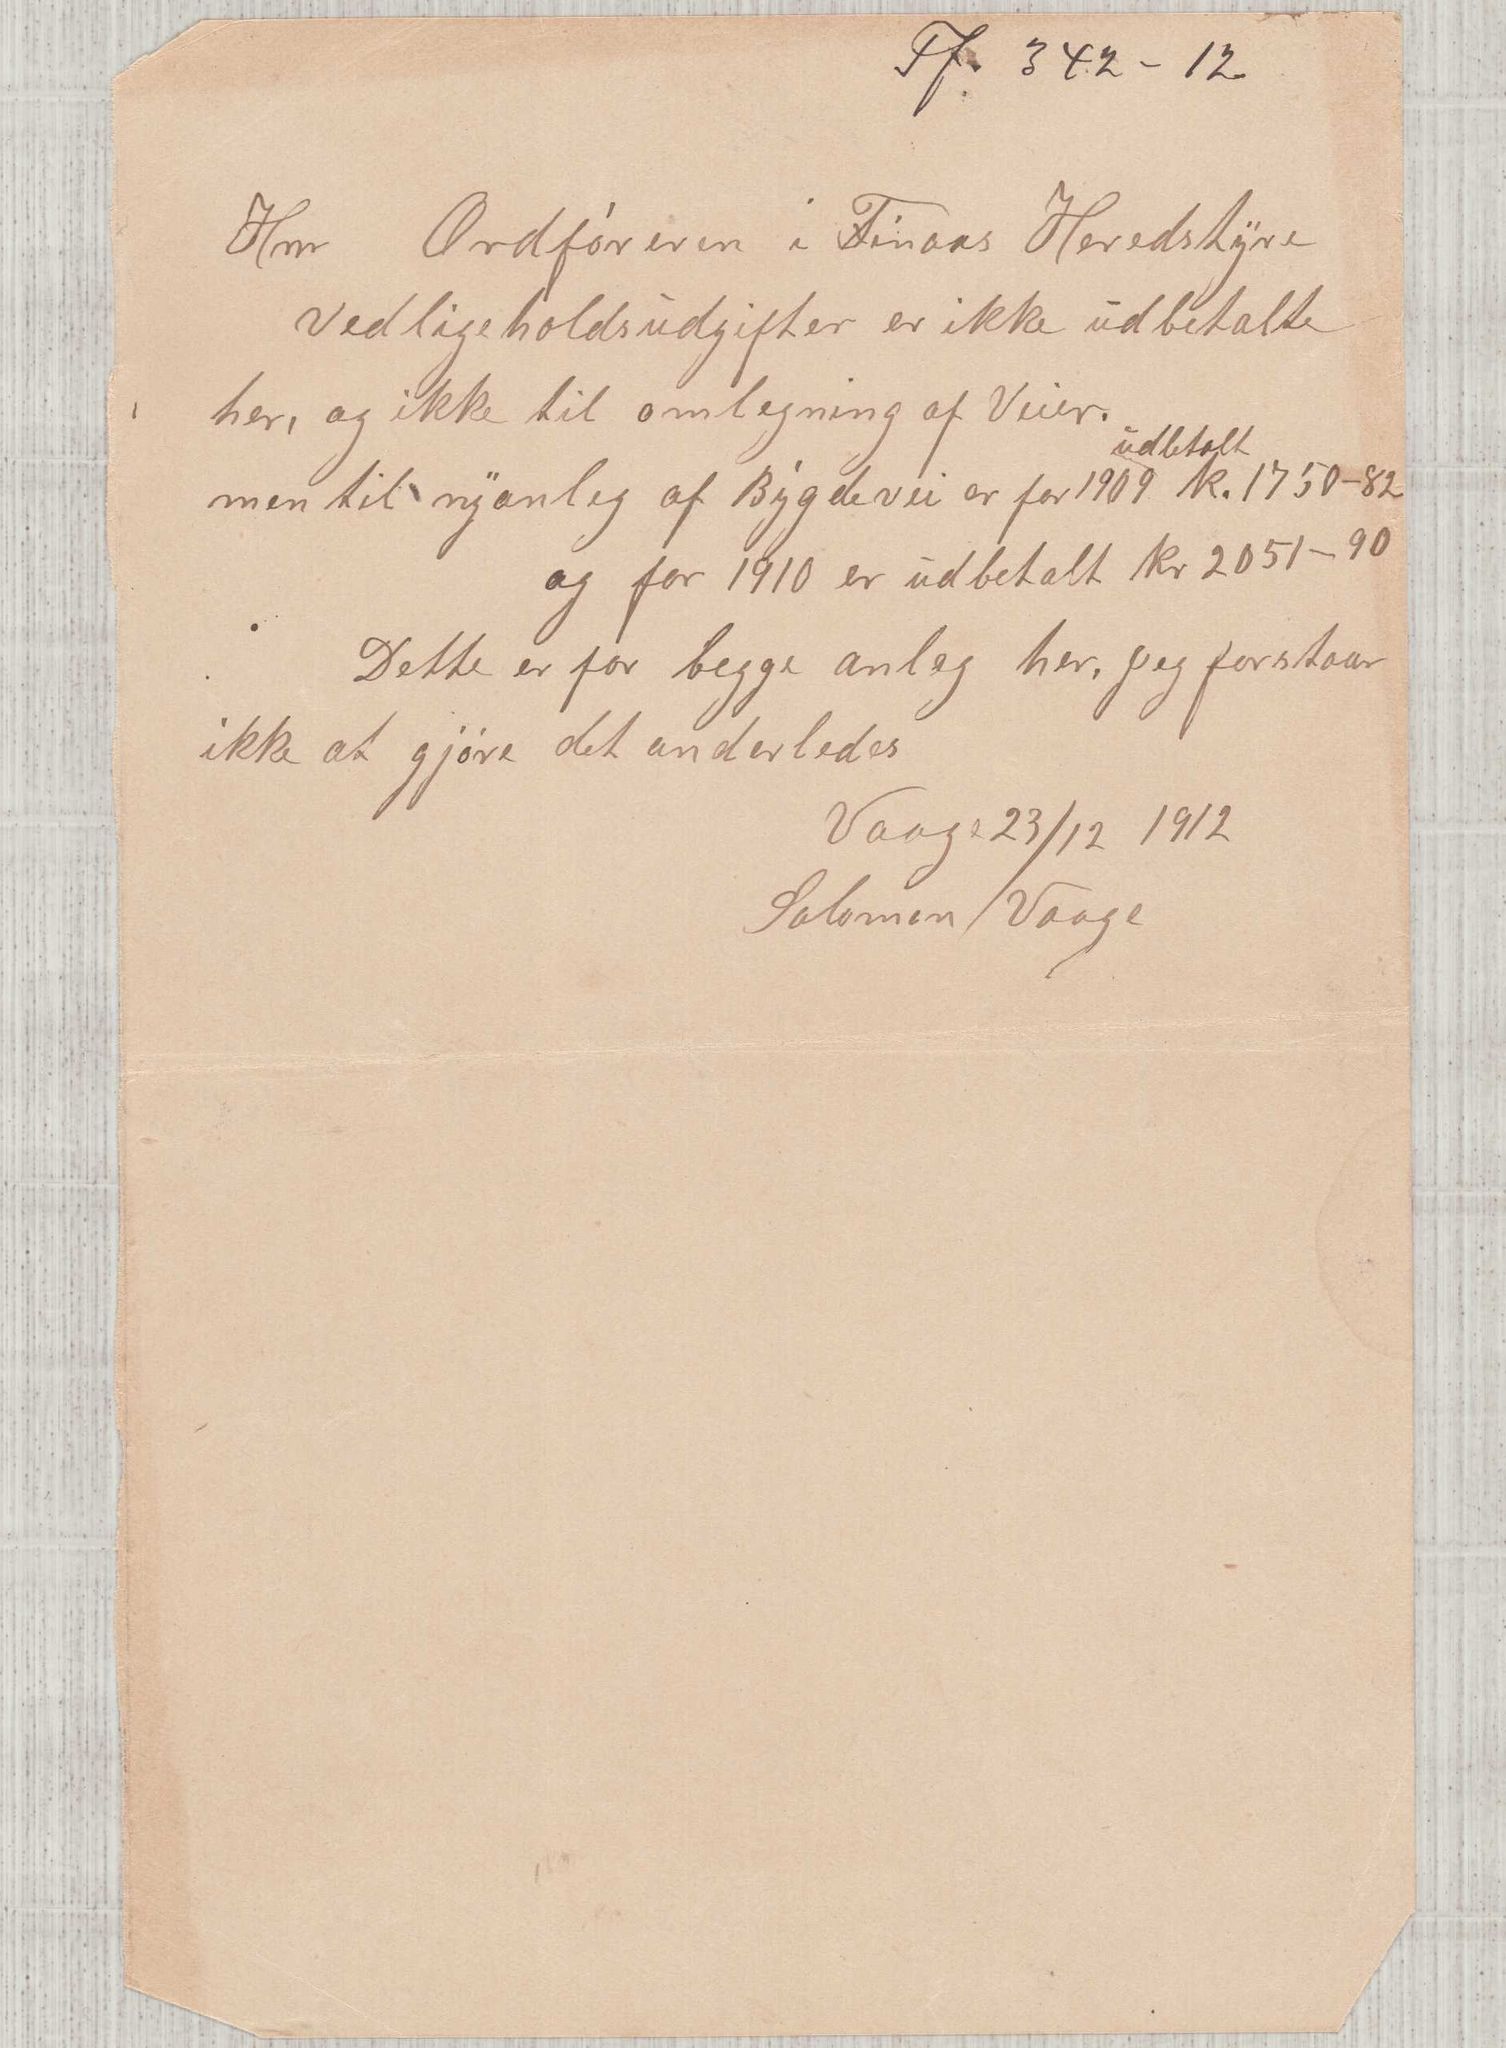 Tf. 342-12
Hrr Ordføreren i Finaas Heredstÿre
Vedligeholdsudgifter er ikke udbetalte
her, og ikke til omlegning af Veier.
udbetalt
men til nÿanleg af Bygdevei er for 1909 k. 1750-82
og for 1910 er udbetalt kr 2051-90
Dette er for begge anleg her, jeg forstaar
ikke at gjöre det anderledes
Vaage 23/12 1912
Salomon Vaage